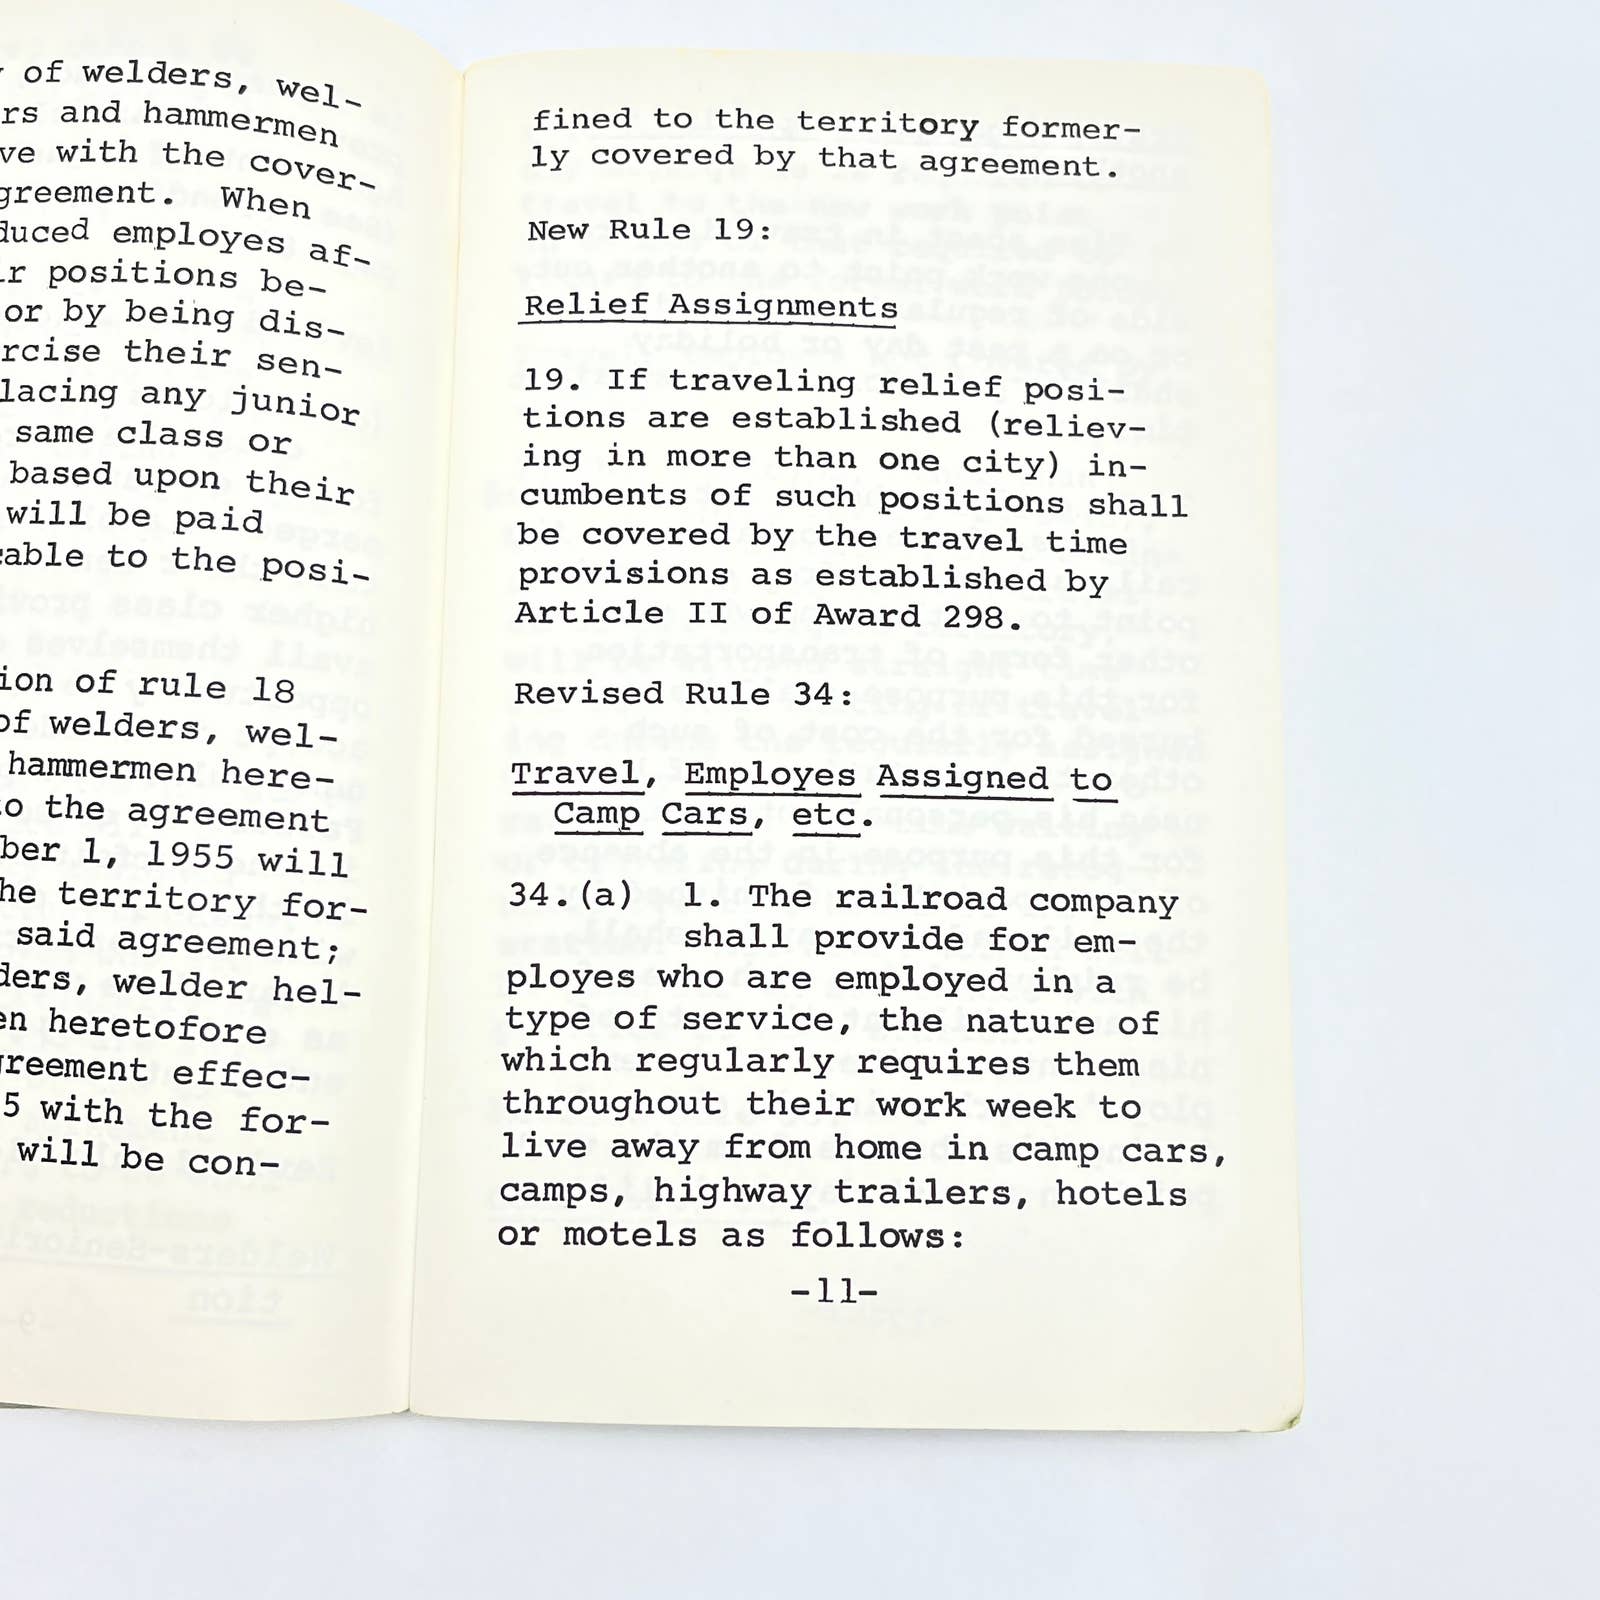 of welders, wel-
rs and hammermen
ve with the cover-
greement. When
duced employes af-
ir positions be-
or by being dis-
rcise their sen-
lacing any junior
same class or
based upon their
will be paid
cable to the posi-
ion of rule 18
of welders, wel-
hammermen here-
to the agreement
ber 1, 1955 will
he territory for-
said agreement;
ders, welder hel-
en heretofore
greement effec-
5 with the for-
will be con-
fined to the territory former-
ly covered by that agreement.
New Rule 19:
Relief Assignments
19. If traveling relief posi-
tions are established (reliev-
ing in more than one city) in-
cumbents of such positions shall
be covered by the travel time
provisions as established by
Article II of Award 298.
Revised Rule 34:
Travel, Employes Assigned to
Camp Cars, etc.
34.(a) 1. The railroad company
shall provide for em-
ployes who are employed in a
type of service, the nature of
which regularly requires them
throughout their work week to
live away from home in camp cars,
camps, highway trailers, hotels
or motels as follows:
-11-